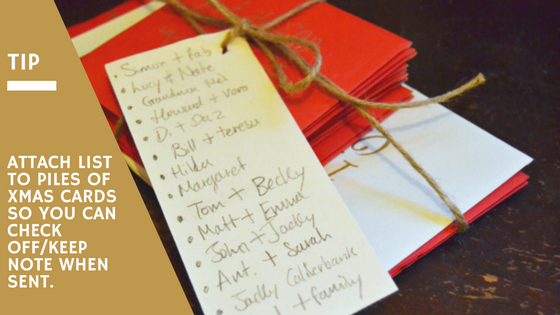 TIP
ATTACH LIST
TO PILES OF
XMAS CARDS
SO YOU CAN
CHECK
OFF/KEEP
NOTE WHEN
SENT.
Simon + Fab
Lucy + Nate
Grandma
Howard + Vero
D. + Daz
Bill + Teresa
Hilda
Margaret
Tom + Becky
Matt + Emma
John + Jacky
Ant. + Sarah
Jacky Calderbank
+ family